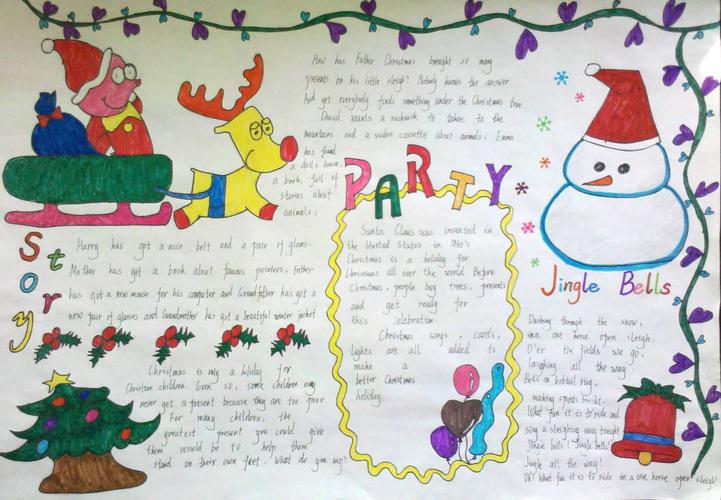 How has Father Christmas brought so many
presents on his little sleigh? Nobody knows the answer.
And yet everybody finds something under the Christmas tree.
David wants a rucksack to take to the
mountains and a video cassette about animals, Emma
has found
a dolls house,
a book full of
stories about
animals,
Story
Harry has got a nice belt and a pair of gloves.
Mother has got a book about famous painters, Father
has got a new mouse for his computer and Grandfather has got a
new pair of glasses and Grandmother has got a beautiful winter jacket
Christmas is only a holiday for
Christian children. Even so, some children may
never get a present because they are too poor
For many children, the
greatest present you could give
them would be to help them
stand on their own feet. What do you say?
PARTY
Santa Claus was invented in
the United States in 1860's
Christmas is a holiday for
Christians all over the world Before
Christmas, people buy trees, presents
and get ready for
this celebration.
Christmas songs, cards,
lights are all added to
make a
better Christmas
holiday.
Jingle Bells
Dashing through the snow,
in a one horse open sleigh.
O'er the fields we go,
Laughing all the way
Bells on bobtail ring,
making spirits bright.
What fun it is to ride and
sing a sleighing song tonight
Jingle bells! Jingle bells!
Jingle all the way!
Oh! What fun it is to ride in a one horse open sleigh!